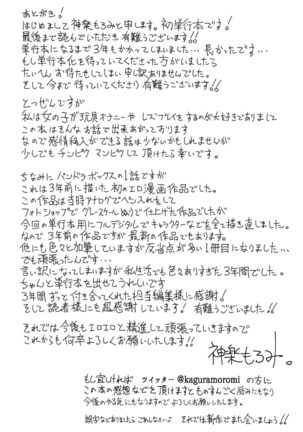 あとがき!
はじめまして神楽もろみと申します。初単行本です!
最後まで読んでいただき有難うございます!!
単行本になるまで3年もかかってしまいました…長かったです…
もし単行本化を待っていてくださった方がいましたら
たいへんお待たせしてしまい申し訳ありませんでした。
そして今まで待っていてくださり有難うございます!!
とつぜんですが
私は女の子が玩具オナニーやレズプレイをするのが大好きでありまして
この本はそんなお話で出来あがっております
なので感情移入ができる話は少ないかもしれませんが
少しでもチンピク マンピクして頂けたら幸いです。
ちなみにパンドラボックスの1話ですが
これは3年前に描いた初のエロ漫画作品でした。
この作品は当時アナログでペン入れをして
フォトショップでグレースケールぬりで仕上げた作品でしたが
今回の単行本用にフルデジタルでキャラクターなどを全て描き直しました。
なので3年前の作品ですが最新の作品でもあります。
他にも色々と加筆していますが反省点が多い1冊になりました…
でも頑張ったんです…
言い訳になってしまいますが私生活でも色々ありすぎた3年間でした。
ちゃんと単行本を出せてうれしいです
3年間ずっと付き合ってくれた担当編集様に感謝!
そして読者様にも超感謝しています! 有難うございました!!
それでは今後もエロエロと精進して頑張っていきますので
これからも何卒よろしくお願いします!!
神楽もろみ。
もし宜しければ ツイッター @kaguramoromi の方に
この本の感想などを頂けますとものすんごく励みになり
今後のやる気にもなりますのでよろしくお願いします。
誤字などありましたらごめんなさい それでは新作でまた会いましょう!!